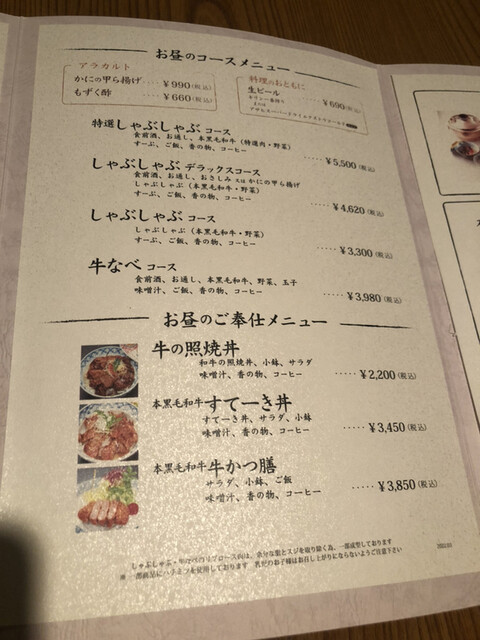 お昼のコースメニュー
アラカルト
かにの甲ら揚げ ････ ¥990(税込)
もずく酢 ････ ¥660(税込)
料理のおともに
生ビール ････ ¥690(税込)
または
特選しゃぶしゃぶ コース
食前酒、お通し、本黒毛和牛(特選肉・野菜)
すーぷ、ご飯、香の物、コーヒー ･････ ¥5,500(税込)
しゃぶしゃぶ デラックスコース
食前酒、お通し、おさしみ 又は かにの甲ら揚げ
しゃぶしゃぶ(本黒毛和牛・野菜)
すーぷ、ご飯、香の物、コーヒー ･････ ¥4,620(税込)
しゃぶしゃぶ コース
しゃぶしゃぶ(本黒毛和牛・野菜)
すーぷ、ご飯、香の物、コーヒー ･････ ¥3,300(税込)
牛なべ コース
食前酒、お通し、本黒毛和牛、野菜、玉子
味噌汁、ご飯、香の物、コーヒー ･････ ¥3,980(税込)
お昼のご奉仕メニュー
牛の照焼丼
和牛の照焼丼、小鉢、サラダ
味噌汁、香の物、コーヒー ･････ ¥2,200(税込)
本黒毛和牛すてーき丼
すてーき丼、サラダ、小鉢
味噌汁、香の物、コーヒー ･････ ¥3,450(税込)
本黒毛和牛 牛かつ膳
サラダ、小鉢、ご飯
味噌汁、香の物、コーヒー ･････ ¥3,850(税込)
しゃぶしゃぶ・牛なべの肩ロース肉は、余分な脂とスジを取り除く為、一部成型しております
※ 一部商品にハチミツを使用しております 乳児のお子様はお召し上がりにならないようご注意下さい